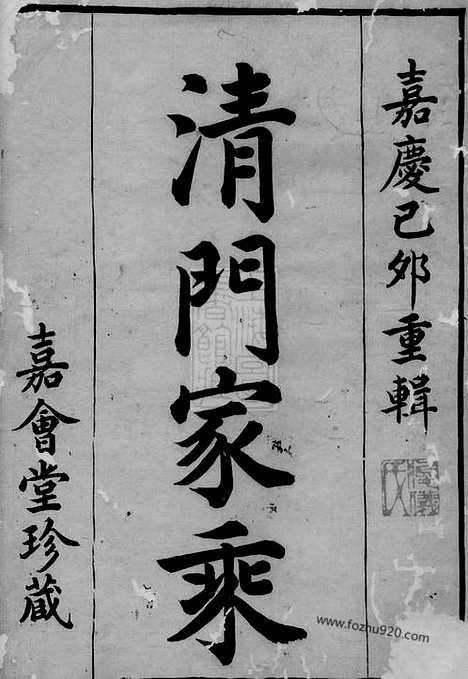 嘉慶己卯重輯
清門家乘
嘉會堂珍藏
www.fozhu920.com